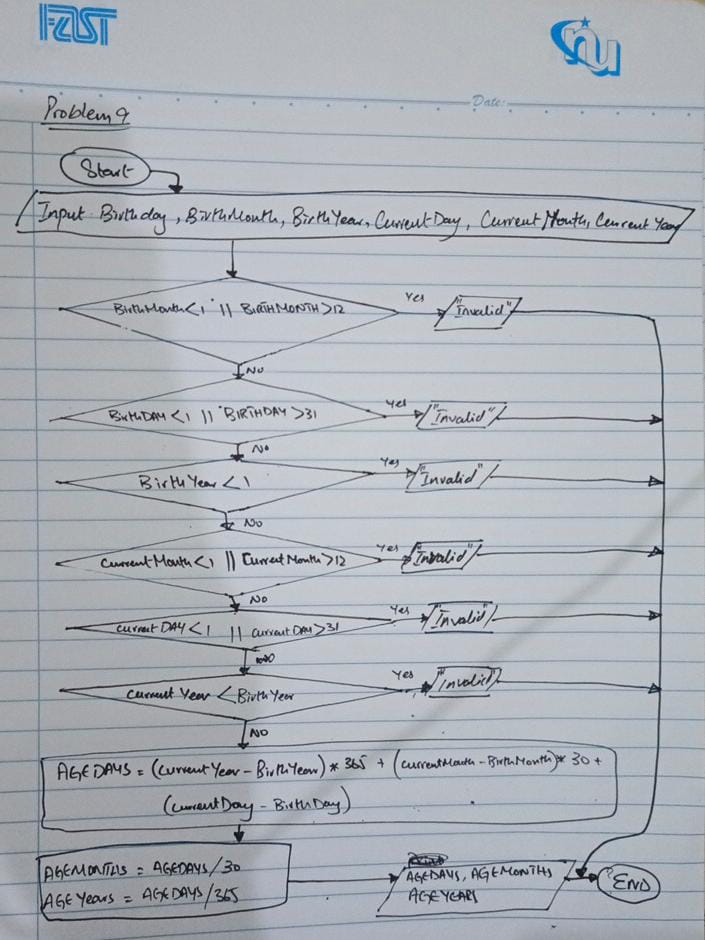 FAST
nu
Date:
Problem 9
Start
Input Birthday, BirthMonth, BirthYear, CurrentDay, CurrentMonth, Current Year
BirthMonth<1 || BIRTHMONTH>12
Yes
"Invalid"
NO
BirthDAY<1 || BIRTHDAY>31
Yes
"Invalid"
No
BirthYear<1
Yes
"Invalid"
NO
CurrentMonth<1 || CurrentMonth>12
Yes
"Invalid"
NO
currentDAY<1 || currentDAY>31
Yes
"Invalid"
NO
current Year < BirthYear
Yes
"Invalid"
NO
AGEDAYS = (currentYear - BirthYear) * 365 + (currentMonth - BirthMonth) * 30 +
(currentDay - BirthDay)
AGEMONTHS = AGEDAYS/30
AGEYears = AGEDAYS/365
AGEDAYS, AGEMONTHS
AGEYEARS
END